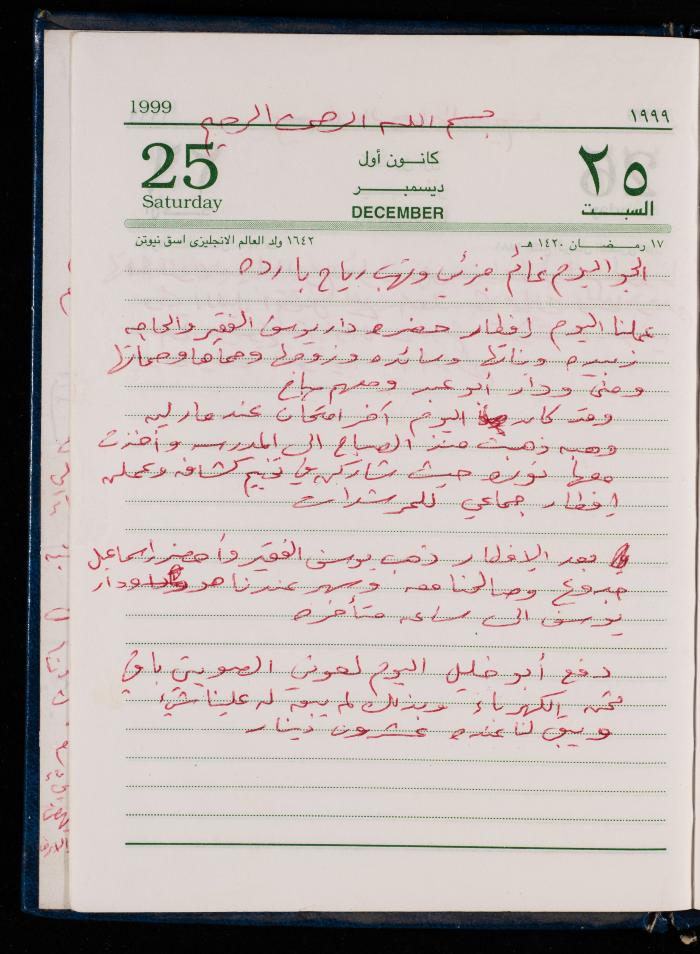 1999 ١٩٩٩
بسم الله الرحمن الرحيم
25 كانون أول ٢٥
ديسمبر
Saturday DECEMBER السبت
١٧ رمضان ١٤٢٠ هـ ١٦٤٢ ولد العالم الانجليزى اسق نيوتن
الجو اليوم غائم جزئي وتهب رياح بارده
عملنا اليوم إفطار حضره دار يوسف الفقير والحاجه
زبيده وبناتها وسائده وزوجها وحماها وحماتها
ومنى ودار أبو عبد ومعهم
وقد كان اليوم آخر امتحان عند ماريه
وهبه ذهبت منذ الصباح الى المدرسه وأخذت
معها نوره حيث شاركن في مخيم كشافه وعملن
إفطار جماعي للمرشدات
بعد الافطار ذهب يوسف الفقير وأحضر اسماعيل
وصالحنا معه وسهر عندنا هو ودار
يوسف الى ساعه متأخره
دفع أبو خليل اليوم لعوني الصويتي باقي
ثمن الكهرباء وبذلك لم يبق له علينا شيء
ويبقى لنا عنده عشرون دينار